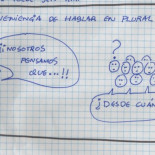 ENIENCIA DE HABLAR EN PLURAL
¡¡NOSOTROS
PENSAMOS
QUE...!!
?
¿DESDE CUÁN